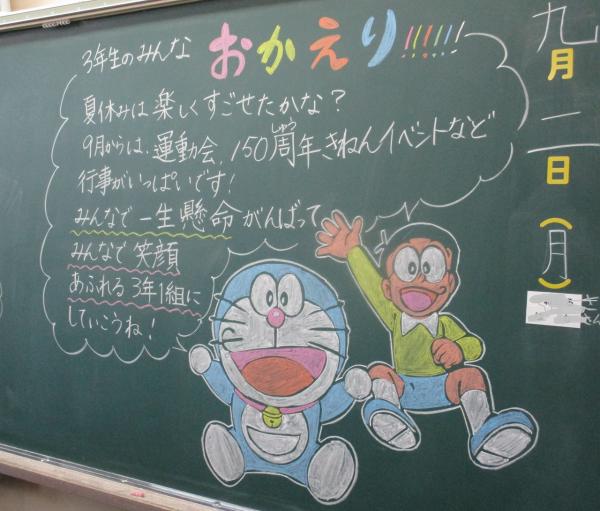 3年生のみんな おかえり!!!!!!
夏休みは楽しくすごせたかな？
9月からは、運動会、150周年きねんイベントなど
しゅう
行事がいっぱいです！
みんなで一生懸命がんばって、
みんなで笑顔
あふれる3年1組に
していこうね！
九月二日(月)
さん